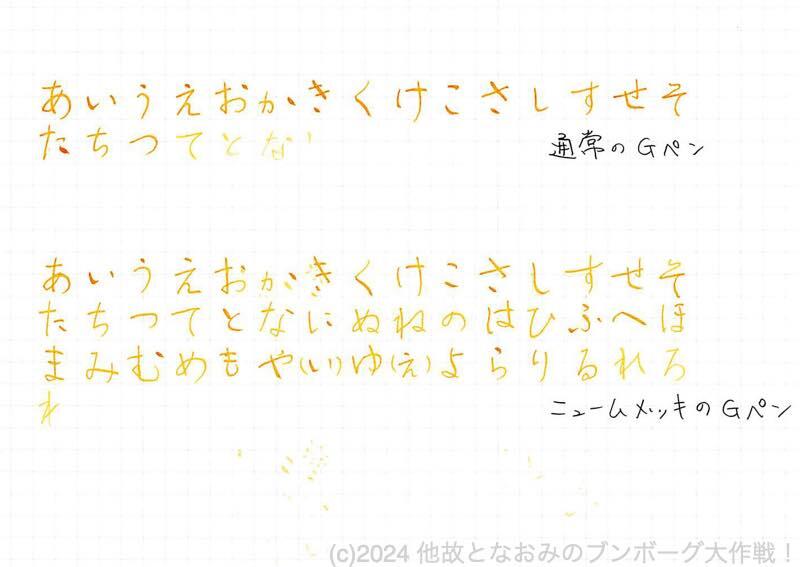 あいうえおかきくけこさしすせそ
たちつてとな
通常のGペン
あいうえおかきくけこさしすせそ
たちつてとなにぬねのはひふへほ
まみむめもや(い)ゆ(え)よらりるれろ
ニュームメッキのGペン
(c)2024 他故となおみのブンボーグ大作戦！